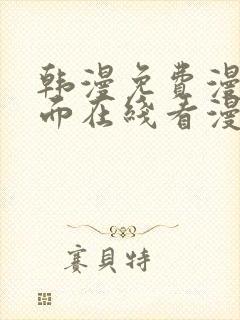 韩漫免费漫
而在线看漫
赛貝特